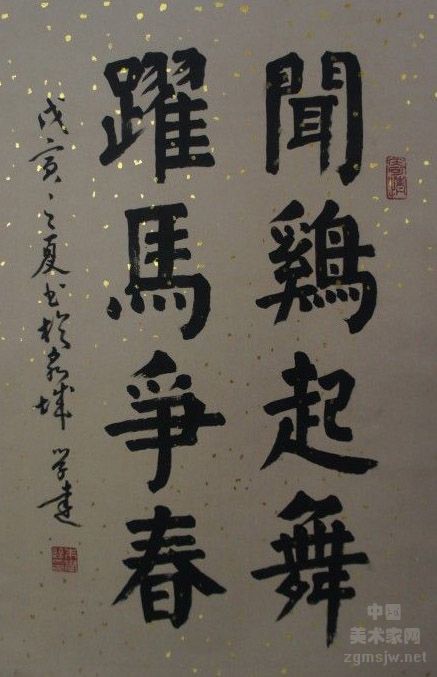 聞鷄起舞
躍馬爭春
戊寅之夏书於泉城 学建
中国
美术家网
zgmsjw.net